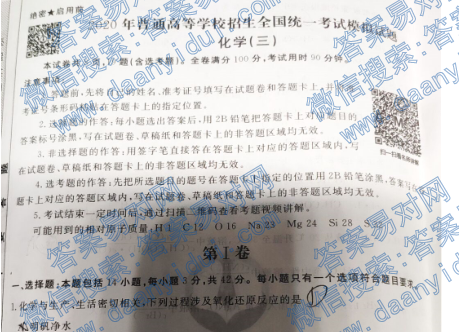 绝密★启用前
2020年普通高等学校招生全国统一考试模拟试题
化学(三)
全卷满分100分,考试用时90分钟
注意事项
1.答题前,先将自己的姓名、准考证号填写在试题卷和答题卡上,并将
考证号条形码粘贴在答题卡上的指定位置。
2.选择题的作答:每小题选出答案后,用2B铅笔把答题卡上对应题目的
答案标号涂黑,写在试题卷、草稿纸和答题卡上的非答题区域均无效。
3.非选择题的作答:用签字笔直接答在答题卡上对应的答题区域内。写
在试题卷、草稿纸和答题卡上的非答题区域均无效。
4.选考题的作答:先把所选题目的题号在答题卡上指定的位置用2B铅笔涂黑。答案写在答
题卡上对应的答题区域内,写在试题卷、草稿纸和答题卡上的非答题区域均无效。
5.考试结束一定时间后,通过扫描二维码查看考题视频讲解。
可能用到的相对原子质量:H 1 C 12 O 16 Na 23 Mg 24 Si 28 S
扫一扫
第Ⅰ卷
一、选择题:本题包括14小题,每小题3分,共42分。每小题只有一个选项符合题目要求
1.化学与生产、生活密切相关,下列过程涉及氧化还原反应的是 D
明矾净水
微信搜索:答案易对网
www.daanyidui.com